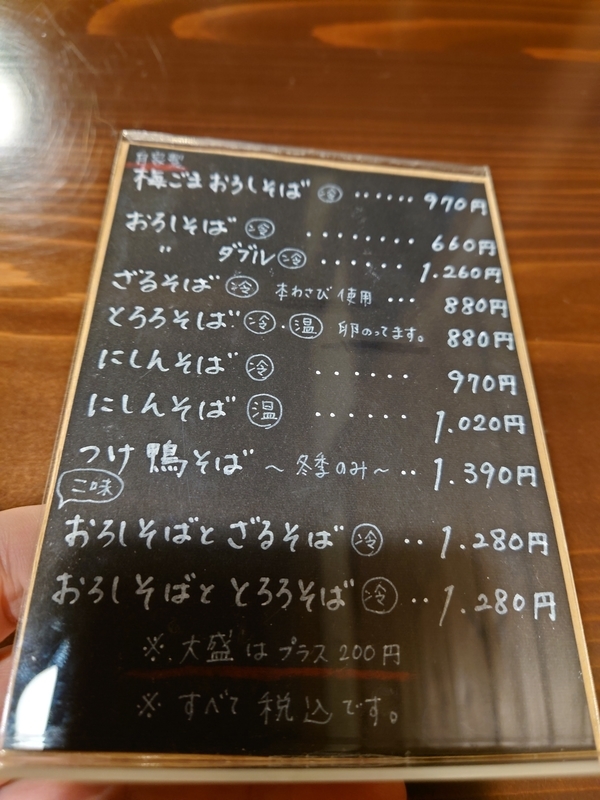 自家製
梅ごまおろしそば 冷 ‥‥‥ 970円
おろしそば 冷 ‥‥‥‥ 660円
〃 ダブル 冷 ‥‥‥ 1.260円
ざるそば 冷 本わさび使用 ‥・ 880円
とろろそば 冷・温 卵のってます。 880円
にしんそば 冷 ‥‥‥ 970円
にしんそば 温 ‥‥‥ 1.020円
つけ鴨そば ～冬季のみ～ ‥ 1.390円
二味
おろしそばと ざるそば 冷 ‥ 1.280円
おろしそばと とろろそば 冷 ‥ 1.280円
※ 大盛は プラス 200円
※ すべて 税込です。